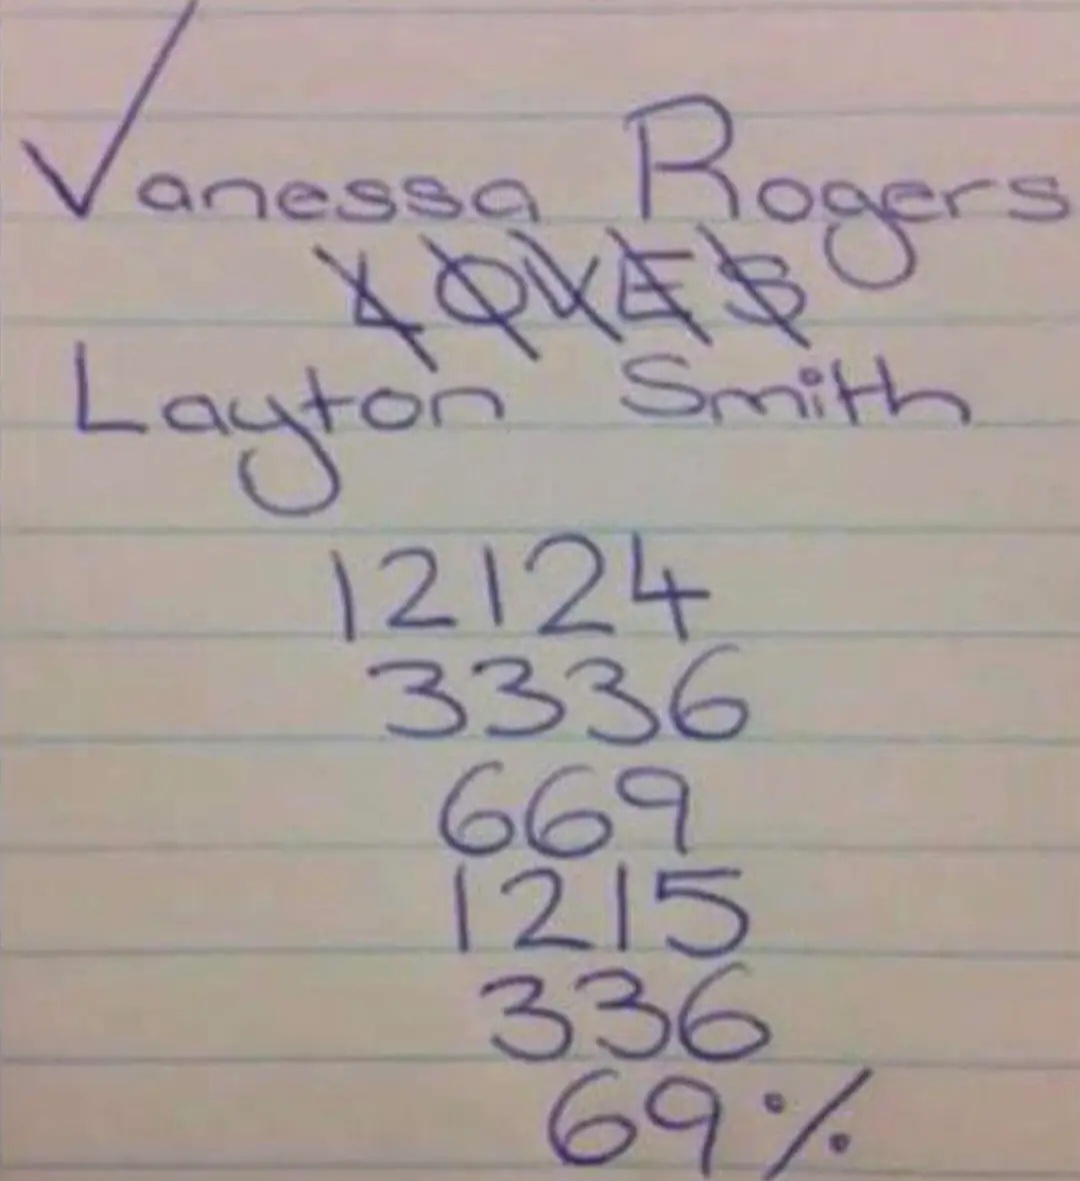 Vanessa Rogers
LOVES
Layton Smith
12124
3336
669
1215
336
69%